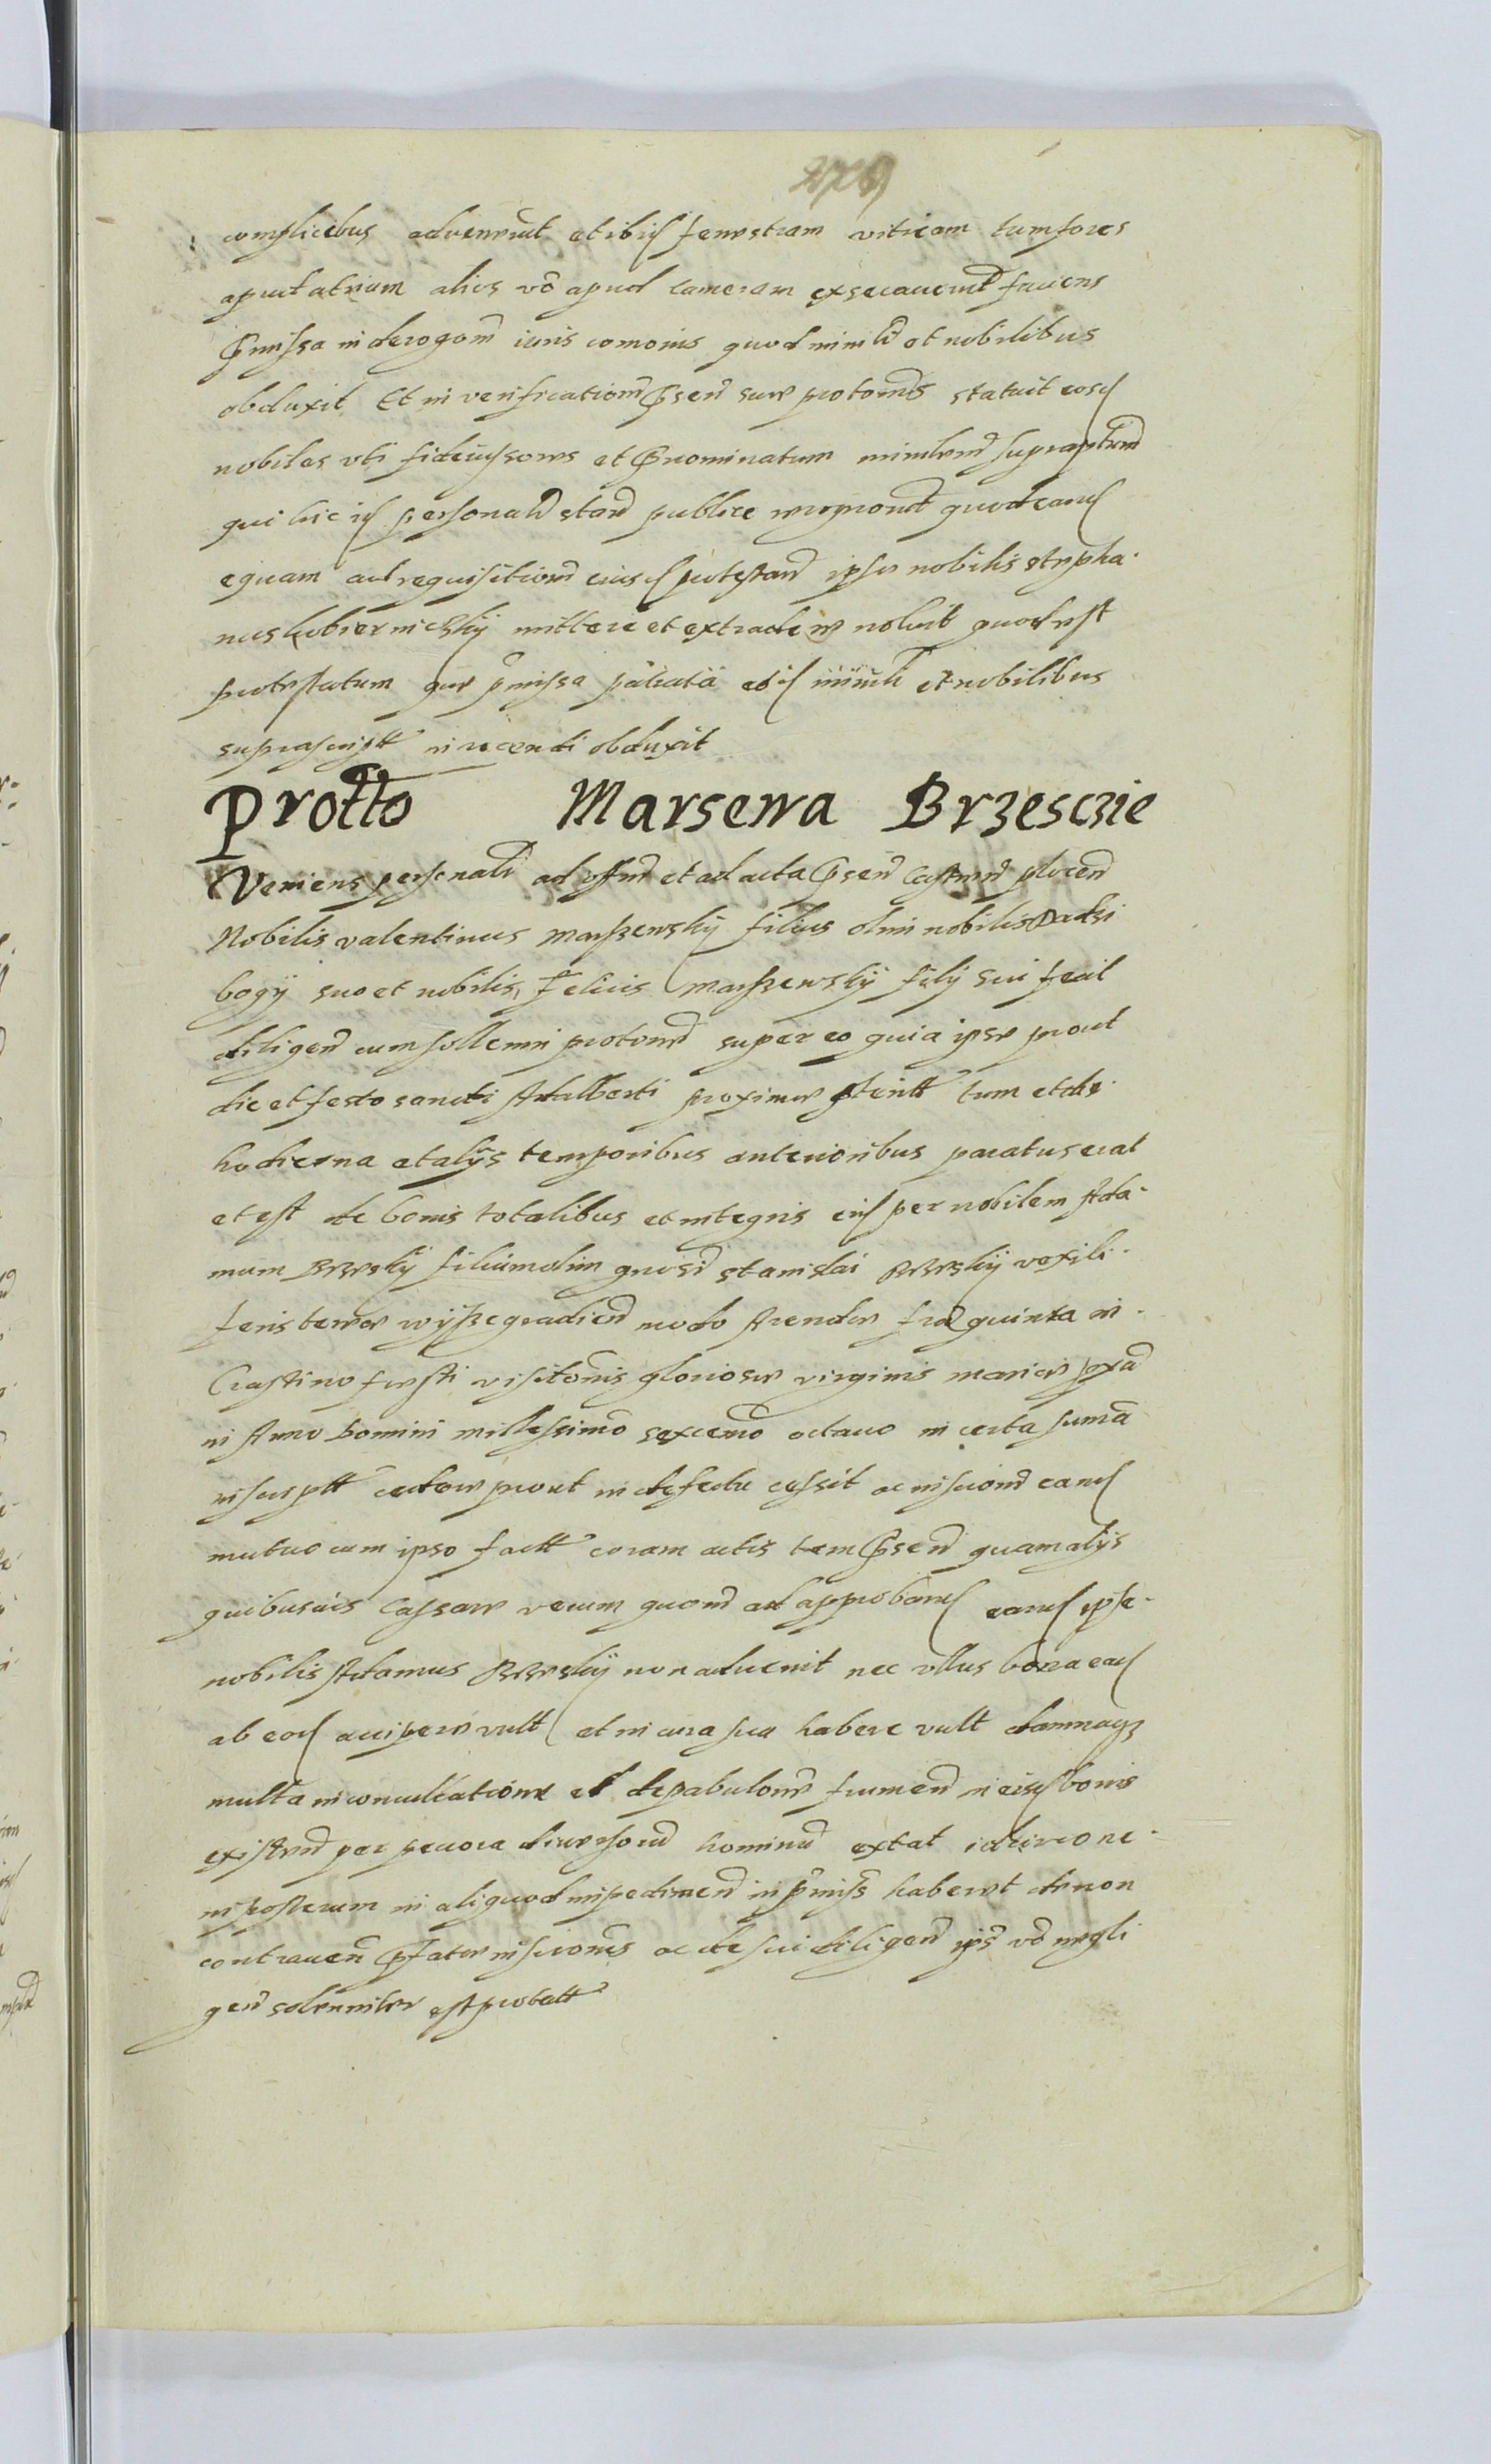 complicibus advenerunt et ibid fenestram vitream tum fores
aput atrium alios vo apud cameram exsecaverunt faciens
pmissa in derogaom iuris comonis quod minrli et nobilibus
obduxit Et in verificationem psen sue protonis statuit eosd
nobiles uti fideiussores et pnominatum minrlem suprascptum
qui hic id personalr stan publice recognount quod eand
equam ad requisitionem eiusd protestan ipse nobilis Stepha-
nus Kobiernicskÿ mittere et extradere noluit quod est
protestatum que pmissa palcata eosd minrli et nobilibus
suprascriptt in recenti obduxit
Protto Marsewa Brzesczie
Veniens personalr ad offm et ad acta psen Castren plocen
Nobilis Valentinus Marszewskÿ filius olim nobilis Radzi
bogÿ suo et nobilis Felicis Marszewskÿ filÿ sui fecit
diligen cum sollemni protone super eo quia ipse prout
die et festo sancti Adalberti proxime pteritt tum et die
hodierna et alÿs temporibus anterioribus paratus erat
et est de bonis totalibus et integris eid per nobilem Ada-
mum filium olim gnosi Stanislai vexili-
feris terrae Wÿszegradien modo Arendae fria quinta in
Crastino festi visitonis gloriosae virginis Mariae pxa
in Anno Domini millessimo sexcemo octavo in certa suma
inscriptt cedere prout in defectu cessit ac inscrionem eand
mutuo cum ipso factt coram actis tam psen quam alÿs
quibusvis cassare verum quoniam ad approband eand ipse
nobilis Adamus non advenit nec ullus bona ead
ab eod accipere vult et in cura sua habere vult damnaqz
multa in conculcatione et depabulone frumen in eisd bonis
existen per pecora diversorum hominum extat idcirco ne
in posterum in aliquod impedimen in pmiss haberet de non
contraven pfatae inscrionis ac de sui diligen ips vo negli
gen solenniter est protatt